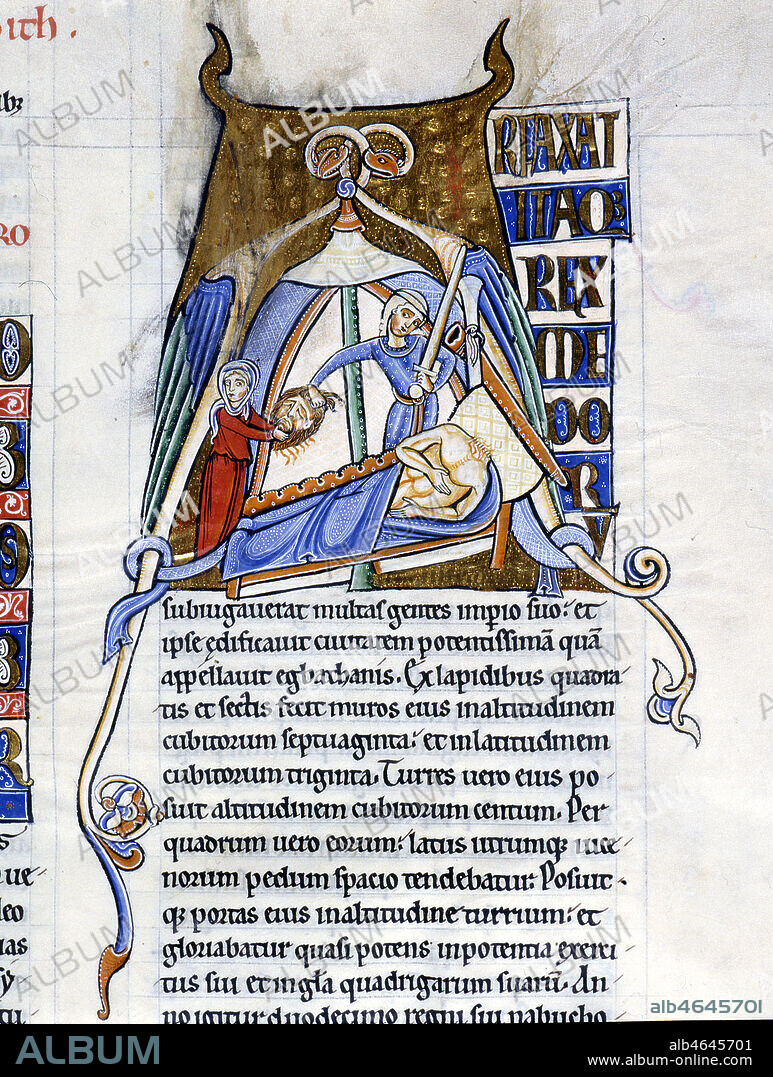 ith.
RO
RFAXAT
ITAQ;
REX
ME
DO
R
V
subiugauerat multas gentes imperio suo: et
ipse edificauit ciuitatem potentissimā quā
appellauit egbathanis. Ex lapidibus quadra
tis et sectis fecit muros eius in altitudinem
cubitorum septuaginta: et in latitudinem
cubitorum triginta. Turres uero eius po
suit altitudinem cubitorum centum. Per
quadrum uero eorum: latus utrumq; uice
norum pedum spacio tendebatur: Posuit
q; portas eius in altitudine turrium: et
gloriabatur quasi potens in potentia exerci
tus sui et in gl̄a quadrigarum suarū. An
no igitur duodecimo regni sui nabucho
ALBUM
alb4645701
alb4645701
www.album-online.com